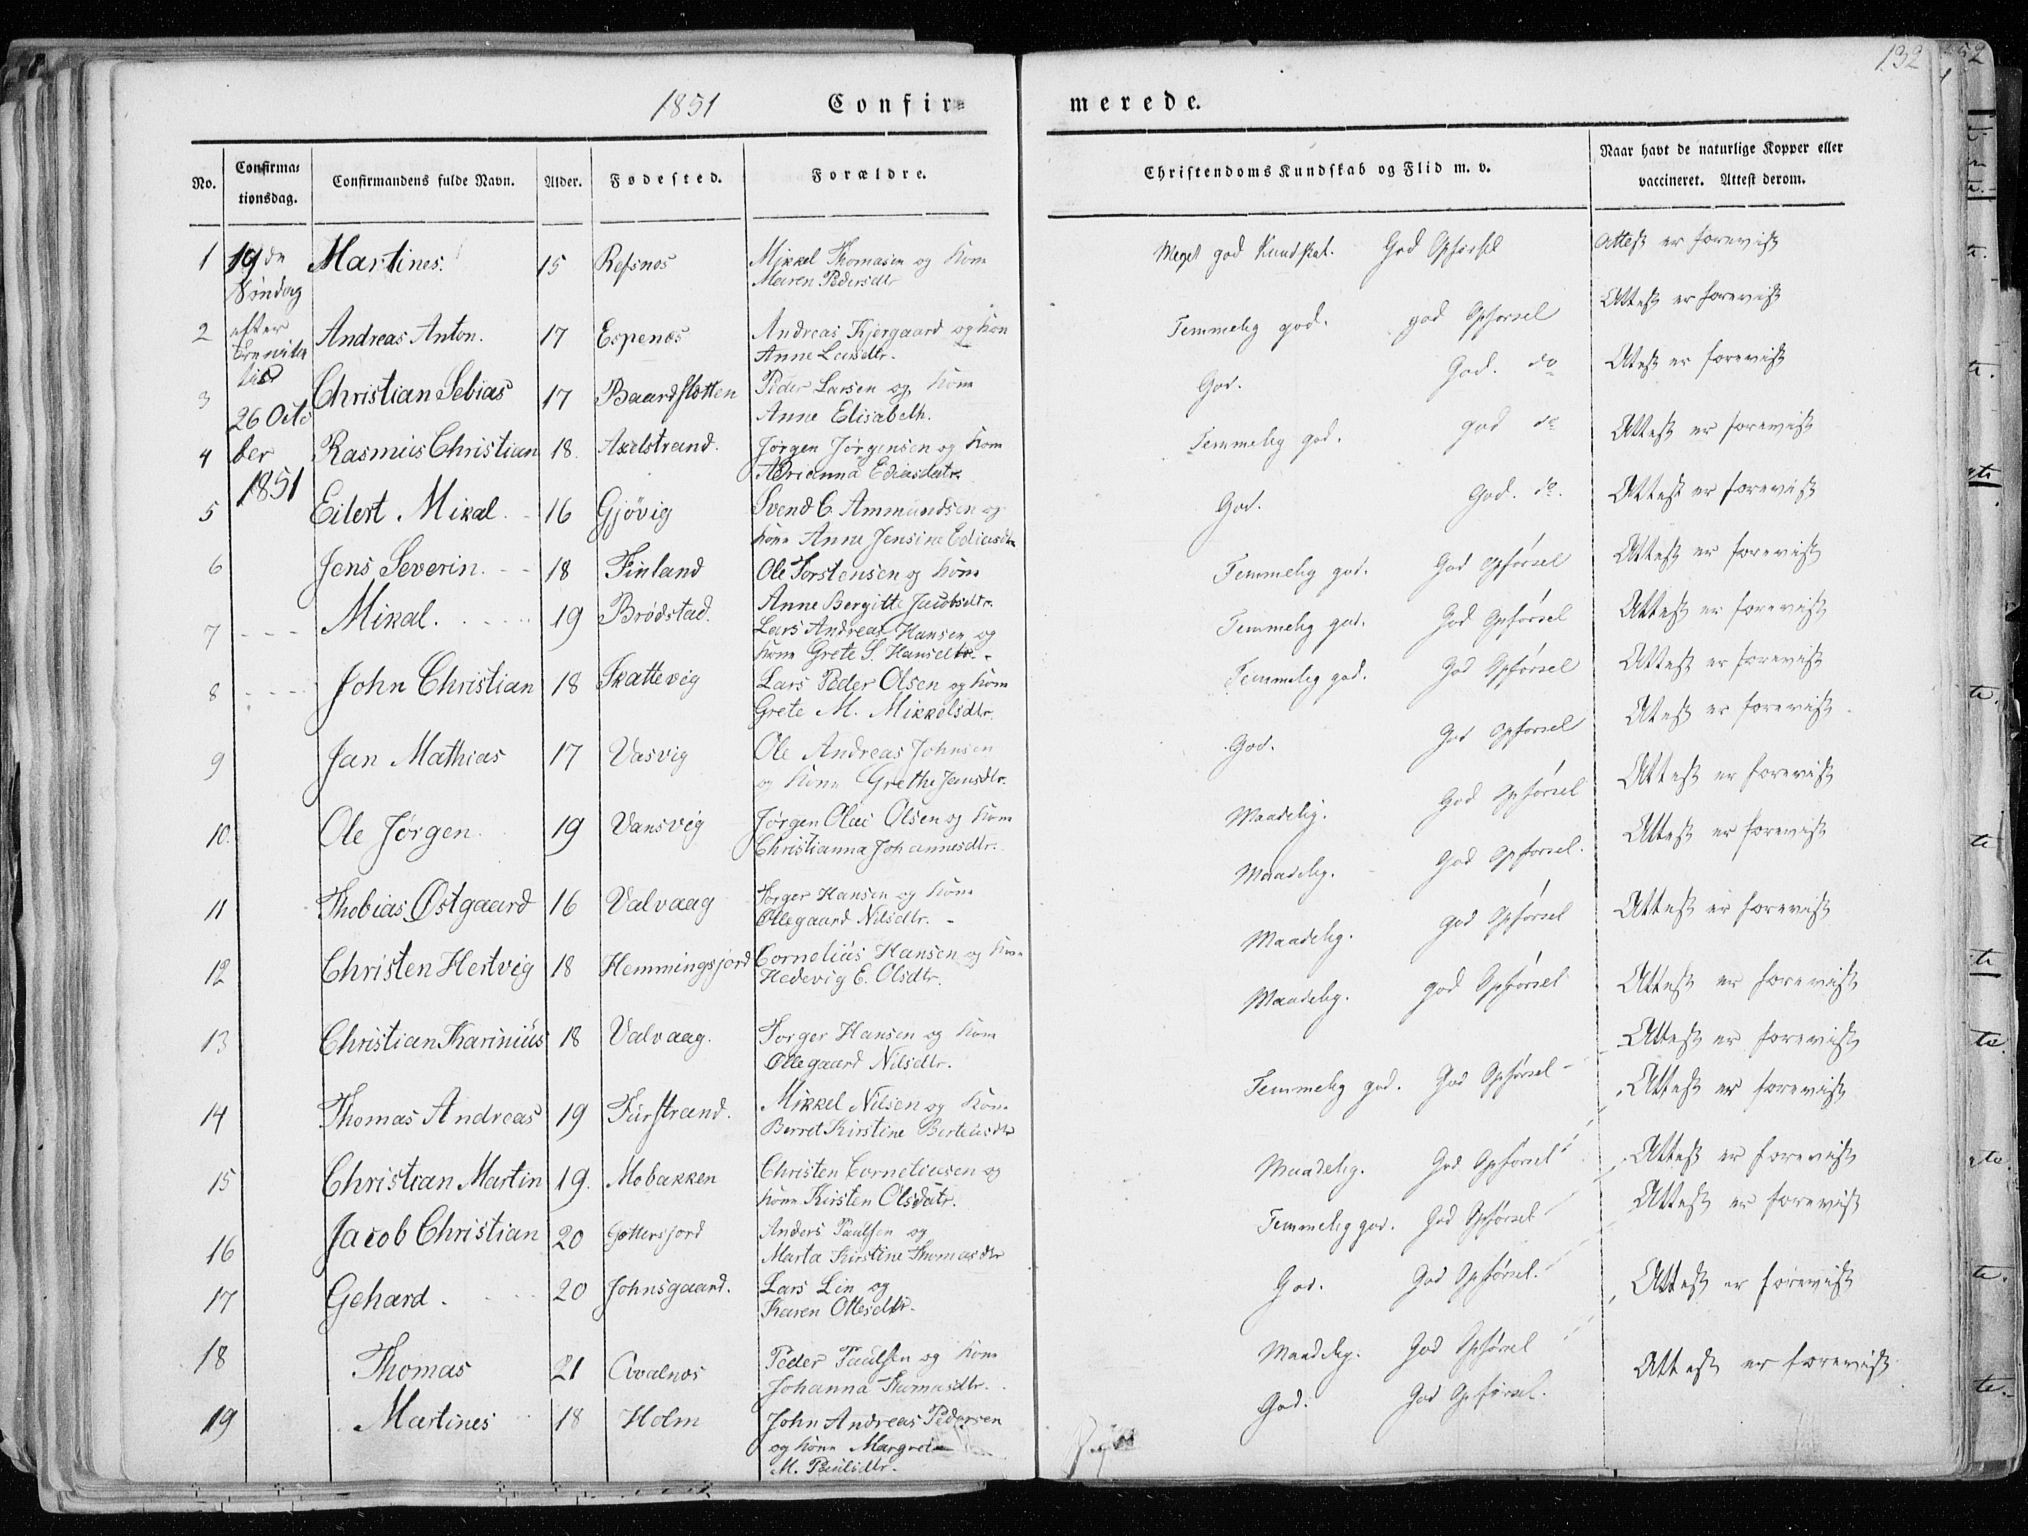 1851 Confir=
merede.
132
No.
Confirma=
tionsdag.
Confirmandens fulde Navn.
Alder.
Fødested.
Forældre.
Christendoms Kundskab og Flid m. v.
Naar havt de naturlige Kopper eller
vaccineret. Attest derom.
19de
Søndag
efter
26 Octo
ber
1851
1 Martines. 15 Refsnes Mikkel Thomasen og Kone Meget god Kundskab. God Opførsel Attest er forevist
Maren Pedersdtr
2 Andreas Anton. 17 Espenes Andreas Kjergaard og Kon Temmelig god. god Opførsel Attest er forevist
Anne Larsdtr.
3 Christian Sebias 17 Baardslotten Peder Larsen og Kone God. God. do Attest er forevist
Anne Elisabeth.
4 Rasmus Christian 18. Axelstrand. Jørgen Jørgensen og Kone Temmelig god. god do Attest er forevist
Adrianna Ediasdatr.
5 Eilert Mikal. 16 Gjøvig Svend C. Ammundsen og God. God. do. Attest er forevist
Kone Anne Jensine Ediasdtr
6 Jens Severin. 18 Finland Ole Torstensen og Kone Temmelig god. God Opførsel Attest er forevist
Anne Bergitte Jacobsdtr.
7 Mikal. 19 Brødstad. Lars Andreas Hansen og Temmelig god. God Opførsel Attest er forevist
Kone Grete S. Hansdtr.
8 John Christian 18 Skattevig Lars Peder Olsen og Kone Temmelig god. God Opførsel Attest er forevist
Grete M. Mikkelsdtr.
9 Jan Mathias 17 Vasvig Ole Andreas Johnsen God. God Opførsel Attest er forevist
og Kone Grethe Jansdtr.
10. Ole Jørgen. 19 Vansvig Jørgen Olai Olsen og Kone Maadelig. God Opførsel Attest er forevist
Christianna Johannesdtr.
11 Thobias Østgaard 16 Valvaag Torger Hansen og Kone Maadelig. God Opførsel. Attest er forevist
Ollegaard Nilsdtr.
12 Christen Hertvig 18 Hemmingsjord Cornelius Hansen og Kone Maadelig. God Opførsel Attest er forevist
Hedevig E. Olsdtr.
13 Christian Tharinius 18 Valvaag. Torger Hansen og Kone Maadelig. god Opførsel Attest er forevist
Ollegaard Nilsdtr.
14 Thomas Andreas 19 Furstrand. Mikkel Nilsen og Kone Temmelig god. God Opførsel Attest er forevist
Berret Kirstine Berteusdtr
15 Christian Martin 19. Mobakken Christen Corneliusen og Maadelig. God Opførsel Attest er forevist
Kone Kirsten Olsdatr.
16 Jacob Christian 20 Gottersjord Anders Paulsen og Temmelig god. God Opførsel Attest er forevist
Marta Kirstine Thomasdtr
17 Gehard. 20 Johnsgaard. Lars Lin og God. God Opførsel. Attest er forevist
Karen Ottesdtr.
18 Thomas 21 Qvalnes Peder Paulsen og Kone Maadelig. God Opførsel Attest er forevist
Johanna Thomasdtr.
19 Martines 18 Holm John Andreas Pedersen God. God Opførsel.
og Kone Margrete
M. Paulsdtr.